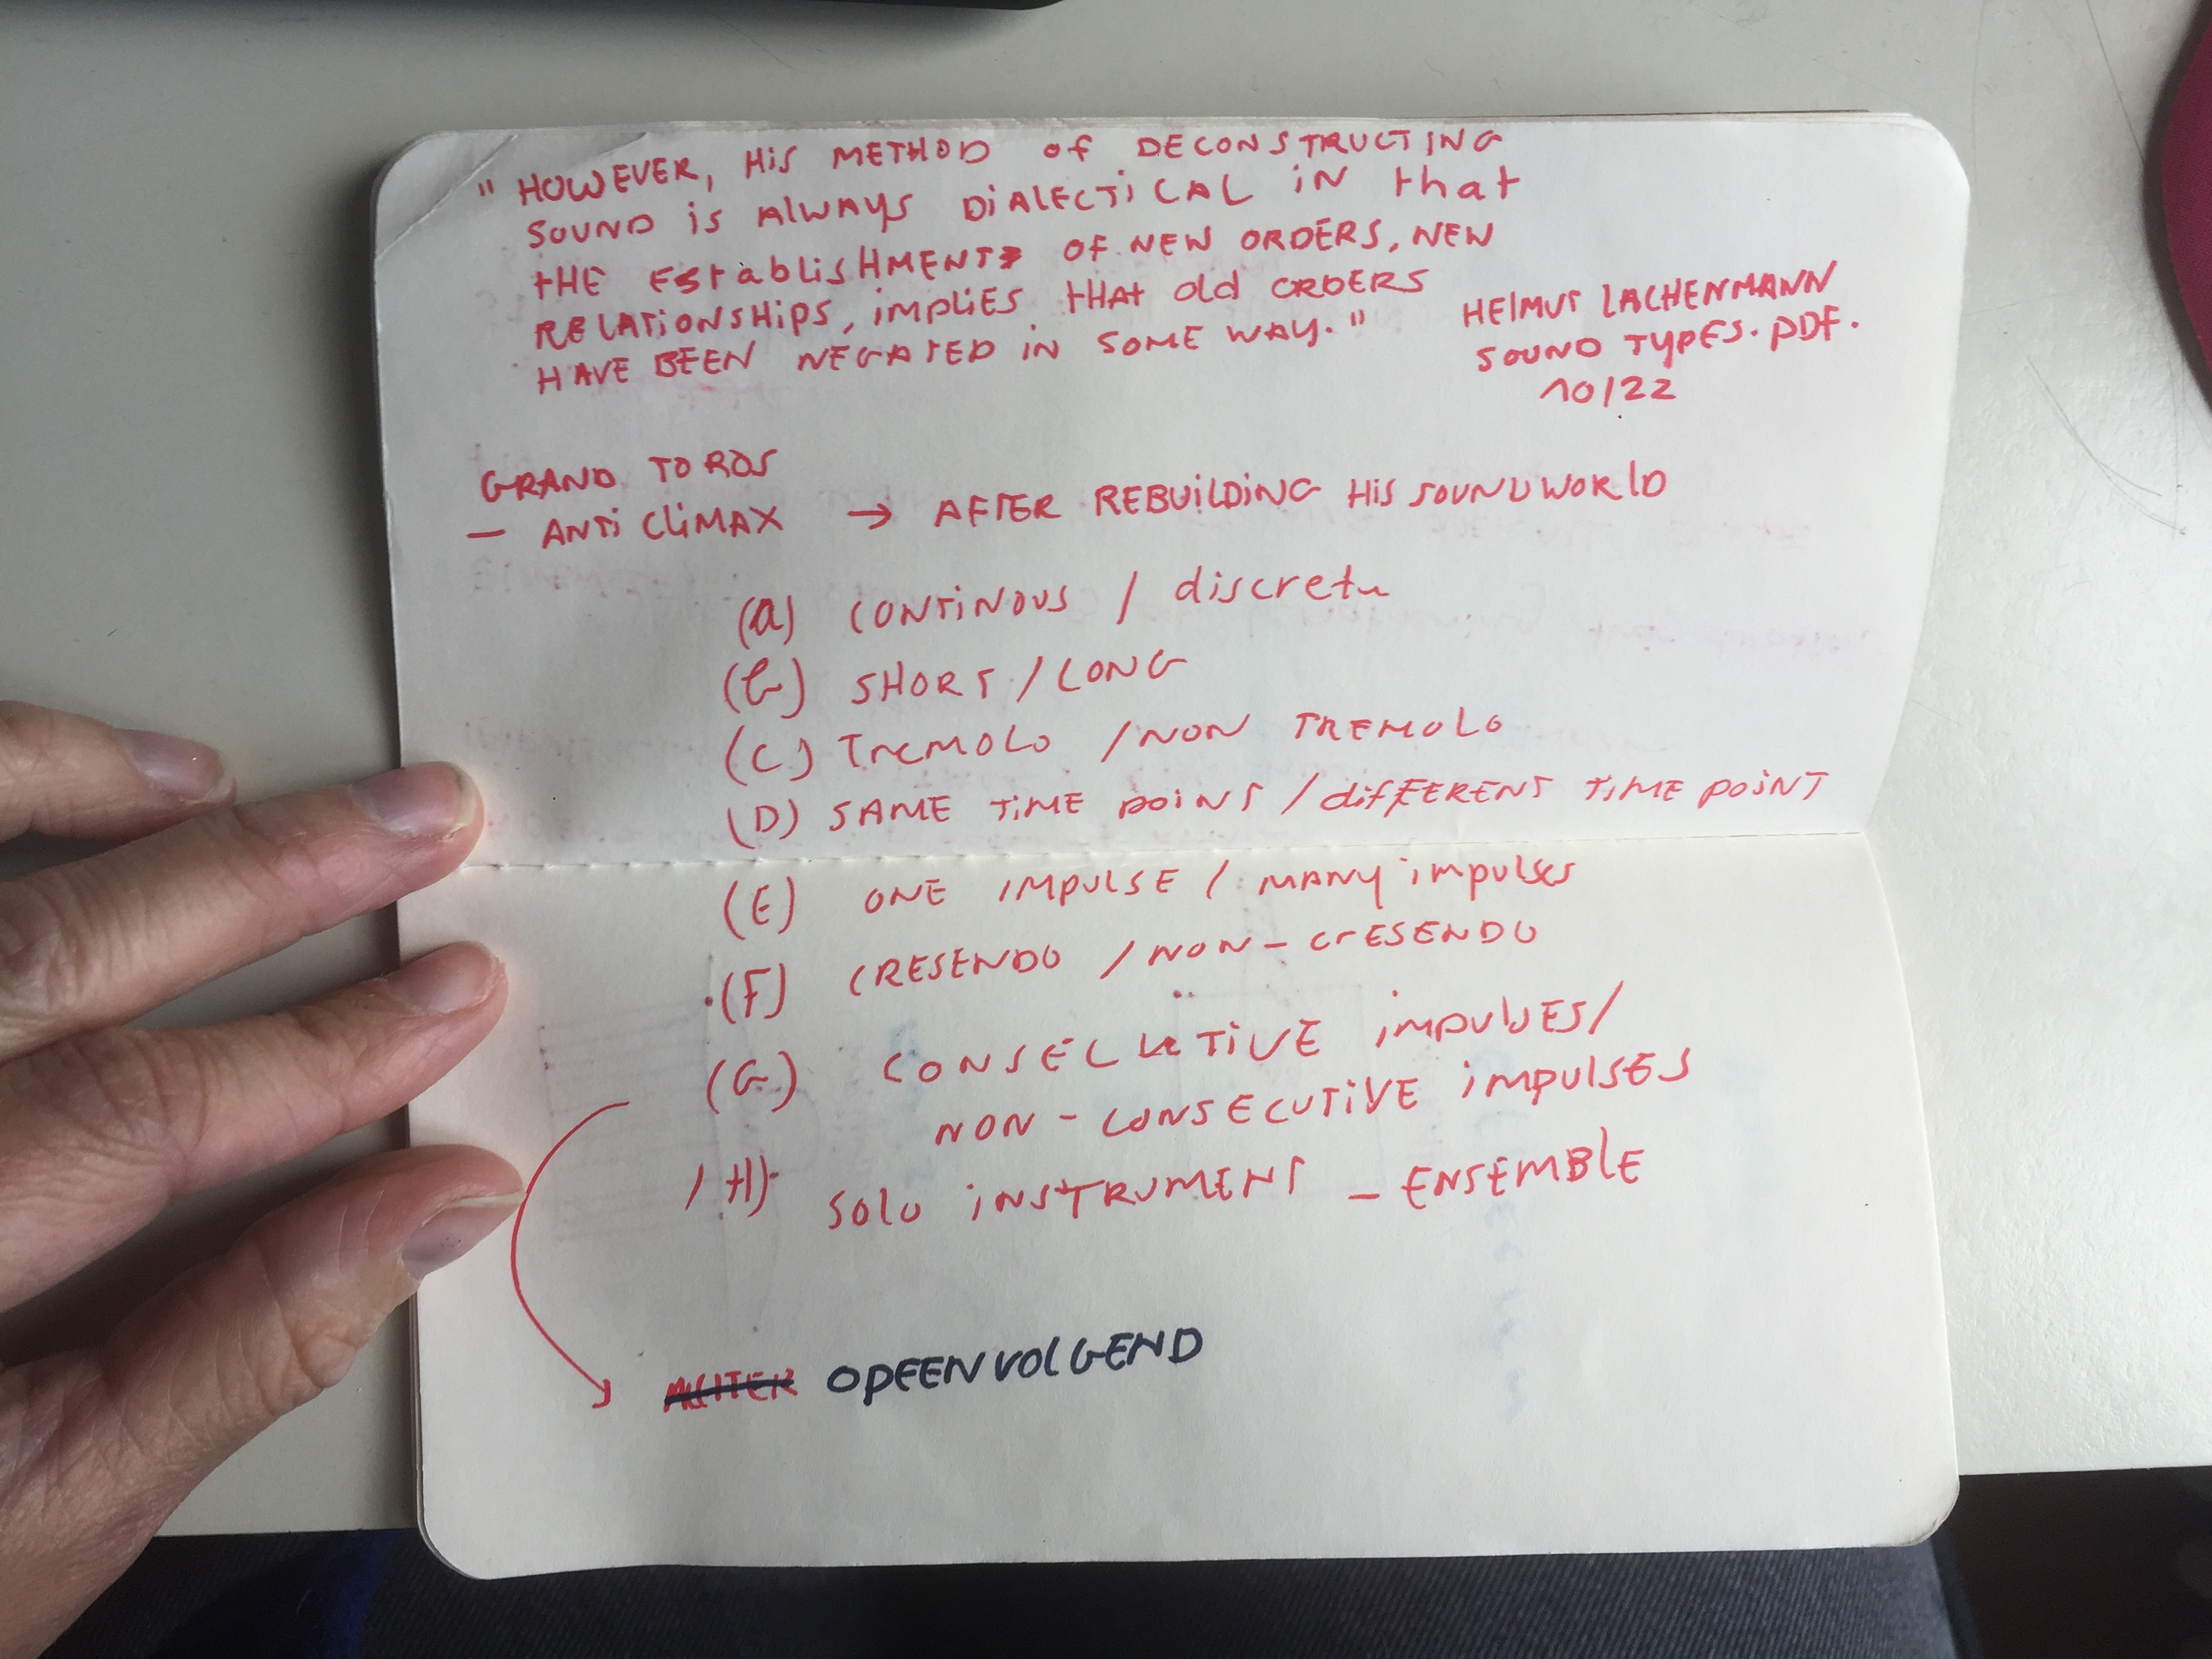 " HOWEVER, HiS METHOD of DECONSTRUCTING
SOUND iS AlWAYS DiAlECTiCAL iN that
tHE EstablisHMENT OF NEW ORDERS, NEW
RELATiONSHipS, impliES tHAt old ORDERS
HAVE BEEN NEGATED iN SOME WAY."
HElMUT LACHENMANN
SOUND TYPES. PDF.
10/22
GRAND TOROS
- ANTi CLiMAX → AFTER REBUiLDiNG HiS SOUNDWORlD
(a) CONTiNOUS / discretu
(b) SHORT / LONG
(C) TremOLO / NON TREMOLO
(D) SAME TiME POiNT / diffERENT TiME POiNT
(E) ONE IMPULSE / MANY impulses
(F) CRESENDO / NON - CrESENDO
(G) CONSECUTiVE iMPULSES/
NON - CONSECUTiVE iMPULSES
(H) SOlO iNSTRUMENT - ENSEMBlE
OPEENVOLGEND